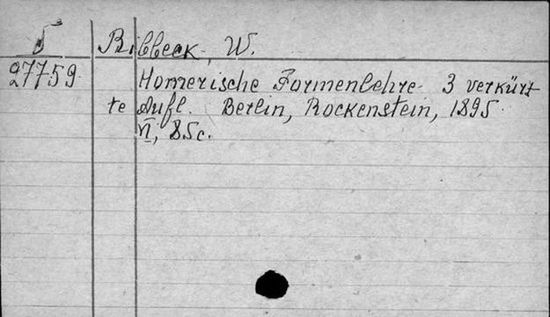 5 Ribbeck, W.
27759 Homerische Formenlehre 3 verkürz
te Aufl. Berlin, Rockenstein, 1895.
VI, 85c.